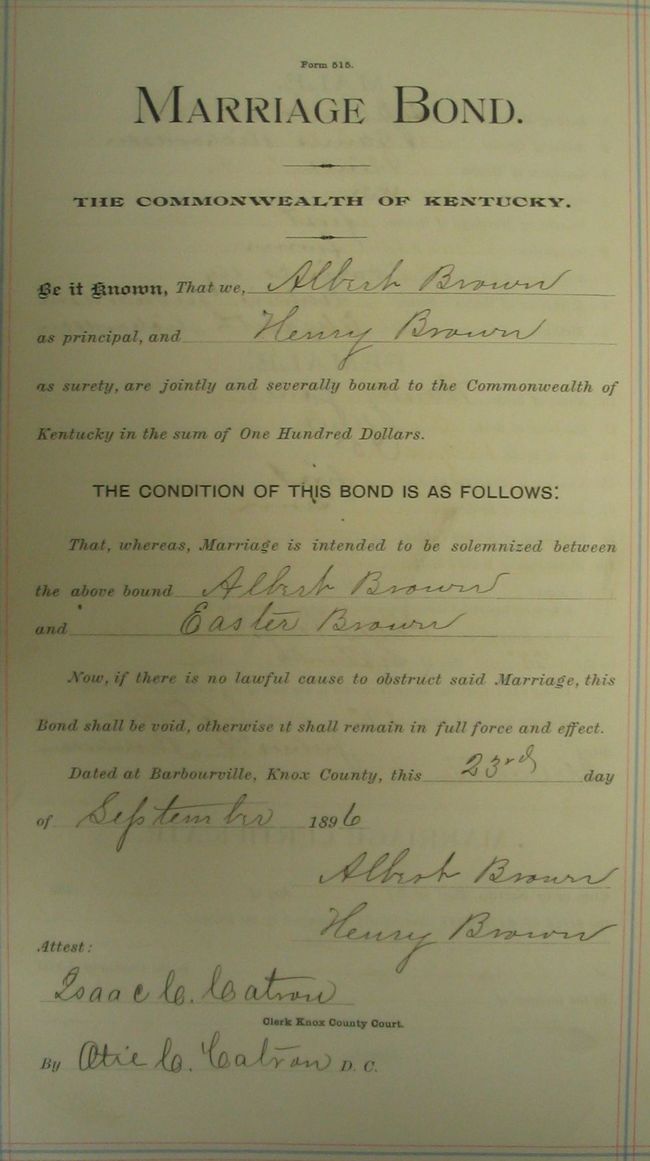 Form 515.
MARRIAGE BOND.
THE COMMONWEALTH OF KENTUCKY.
Be it Known, That we, Albert Brown
as principal, and Henry Brown
as surety, are jointly and severally bound to the Commonwealth of
Kentucky in the sum of One Hundred Dollars.
THE CONDITION OF THIS BOND IS AS FOLLOWS:
That, whereas, Marriage is intended to be solemnized between
the above bound Albert Brown
and Easter Brown
Now, if there is no lawful cause to obstruct said Marriage, this
Bond shall be void, otherwise it shall remain in full force and effect.
Dated at Barbourville, Knox County, this 23rd day
of September 1896
Albert Brown
Henry Brown
Attest:
Isaac C. Catron
Clerk Knox County Court.
By Otie C. Catron D. C.